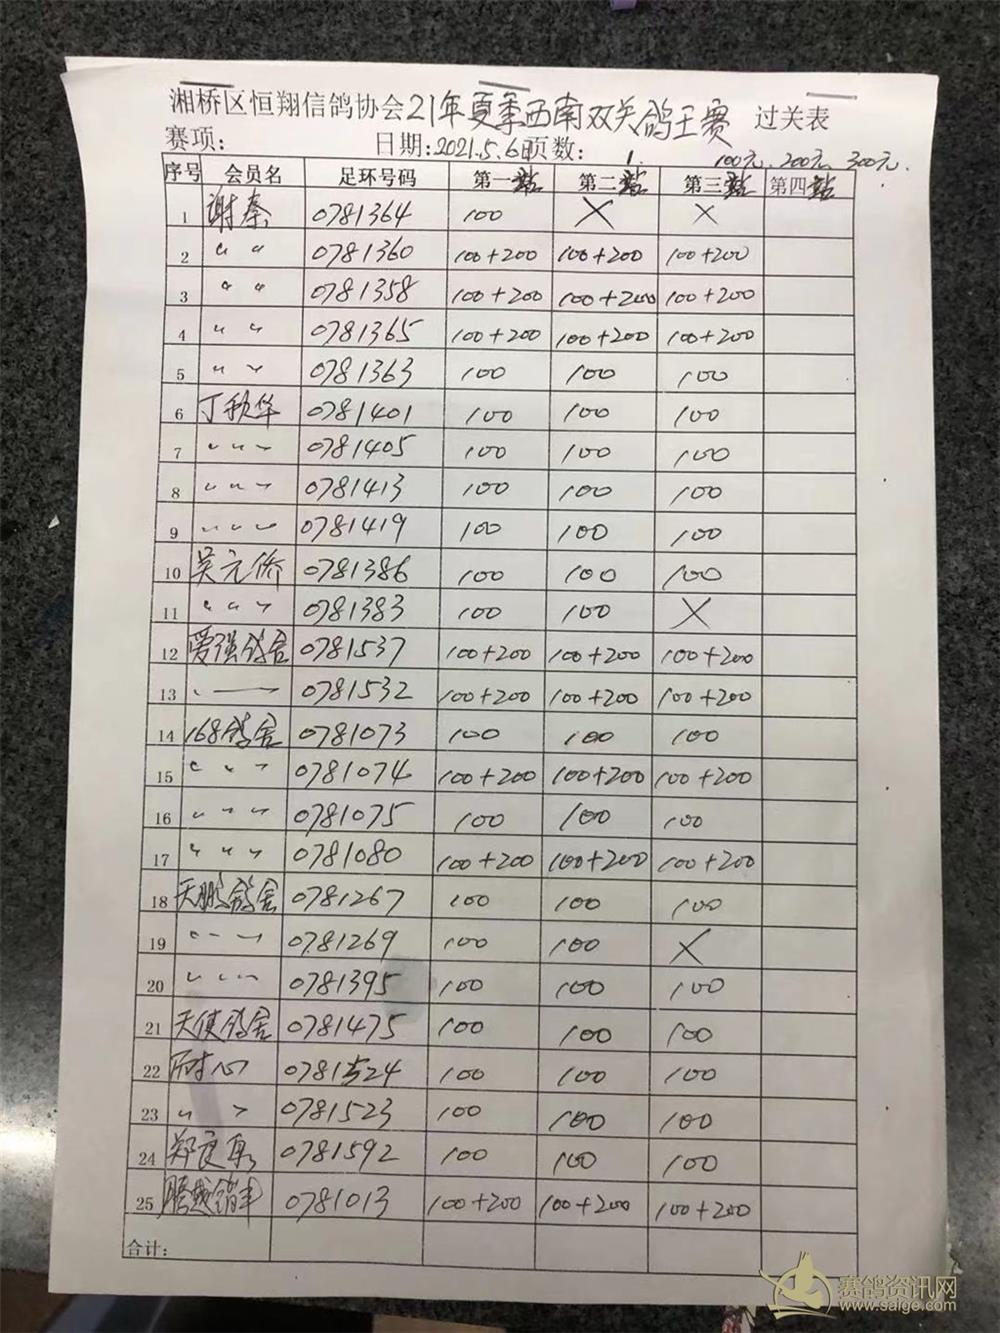 湘桥区恒翔信鸽协会21年夏季西南双关鸽王赛 过关表
赛项: 日期:2021.5.6 页数: 1. 100元、200元、300元.
序号 会员名 足环号码 第一站 第二站 第三站 第四站
1 谢泰 0781364 100 × ×
2 〃 〃 0781360 100+200 100+200 100+200
3 〃 〃 0781358 100+200 100+200 100+200
4 〃 〃 0781365 100+200 100+200 100+200
5 〃 〃 0781363 100 100 100
6 丁秋华 0781401 100 100 100
7 〃 〃 〃 0781405 100 100 100
8 〃 〃 〃 0781413 100 100 100
9 〃 〃 〃 0781419 100 100 100
10 吴元侨 0781386 100 100 100
11 〃 〃 〃 0781383 100 100 ×
12 爱强鸽舍 0781537 100+200 100+200 100+200
13 〃 — 0781532 100+200 100+200 100+200
14 168鸽舍 0781073 100 100 100
15 〃 〃 〃 0781074 100+200 100+200 100+200
16 〃 〃 〃 0781075 100 100 100
17 〃 〃 〃 0781080 100+200 100+200 100+200
18 天鹏鸽舍 0781267 100 100 100
19 〃 〃 〃 0781269 100 100 ×
20 〃 〃 〃 0781395 100 100 100
21 天使鸽舍 0781475 100 100 100
22 耐心 0781524 100 100 100
23 〃 〃 0781523 100 100 100
24 郑 0781592 100 100 100
25 腾越 0781013 100+200 100+200 100+200
合计:
赛鸽资讯网
www.saige.com